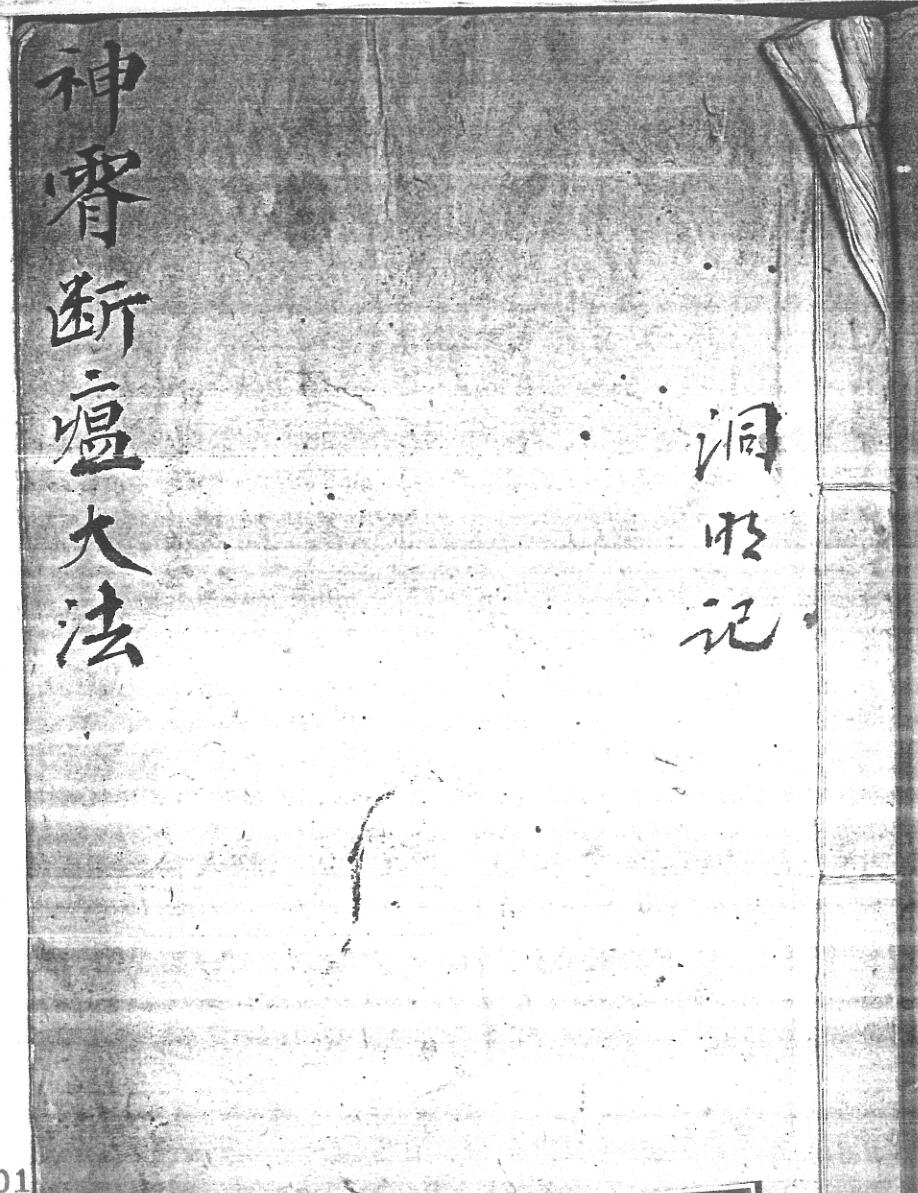 洞明記
神霄断瘟大法
01